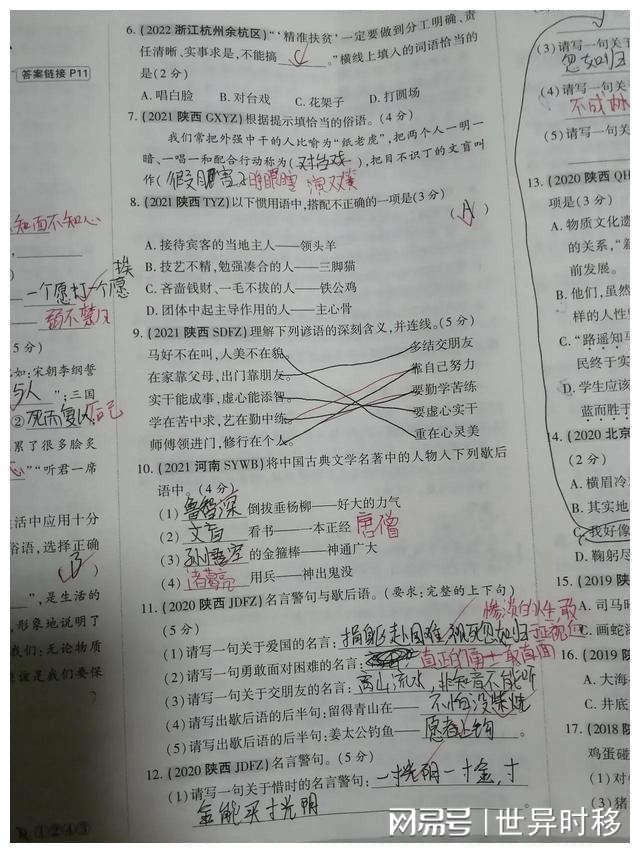 答案链接 P11
知面不知心
一个愿打一个愿
挨
弱不禁风
5 分)
如:宋朝李纲誓
与人"；三国
②死而复
后已
累了很多脍炙
"听君一席
活中应用十分
俗语,选择正确
B )
",是生活的
形象地说明了
我们:无论物质
应该是我们要保
①②④③
6. (2022 浙江杭州余杭区)"'精准扶贫'一定要做到分工明确、责
任清晰、实事求是,不能搞 C 。"横线上填入的词语恰当的
是(2 分)
A. 唱白脸 B. 对台戏 C. 花架子 D. 打圆场
7. (2021 陕西 GXYZ)根据提示填恰当的俗语。(4 分)
我们常把外强中干的人比喻为"纸老虎",把两个人一明一
暗、一唱一和配合行动称为(对台戏),把目不识丁的文盲叫
作( 睁眼瞎 演双簧
8. (2021 陕西 TYZ)以下惯用语中,搭配不正确的一项是(3 分)
( A )
A. 接待宾客的当地主人——领头羊
B. 技艺不精,勉强凑合的人——三脚猫
C. 吝啬钱财、一毛不拔的人——铁公鸡
D. 团体中起主导作用的人——主心骨
9. (2021 陕西 SDFZ)理解下列谚语的深刻含义,并连线。(5 分)
马好不在叫,人美不在貌。 多结交朋友
在家靠父母,出门靠朋友。 靠自己努力
实干能成事,虚心能添智。 要勤学苦练
学在苦中求,艺在勤中练。 要虚心实干
师傅领进门,修行在个人。 重在心灵美
10. (2021 河南 SYWB)将中国古典文学名著中的人物入下列歇后
语中。(4 分)
(1) 鲁智深 倒拔垂杨柳——好大的力气
(2) 文盲 看书——一本正经 唐僧
(3) 孙悟空 的金箍棒——神通广大
(4) 诸葛亮 用兵——神出鬼没
11. (2020 陕西 JDFZ)名言警句与歇后语。(要求:完整的上下句)
(5 分)
(1)请写一句关于爱国的名言:捐躯赴国难,视死忽如归
(2)请写一句勇敢面对困难的名言: 真正的勇士敢直面
惨淡的人生 敢
正视
(3)请写一句关于交朋友的名言:高山流水,非知音不能听
(4)请写出歇后语的后半句:留得青山在—— 不怕没柴烧
(5)请写出歇后语的后半句:姜太公钓鱼—— 愿者上钩 。
12. (2020 陕西 JDFZ)名言警句。(5 分)
(1)请写一句关于惜时的名言警句: 一寸光阴一寸金,寸
金能买寸光阴
(3)请写一句关
忽如归
(4)请写一句关
不成
(5)请写一句关
13. (2020 陕西 QH
项是(3 分)
A. 物质文化遗
的关系,"新
前发展。
B. 他们,虽然
样的人性
C. "路遥知马
民终于实
D. 学生应该
蓝而胜于
14. (2020 北京
(2 分)
A. 横眉冷
B. 其实地
C. 我好像
D. 鞠躬尽
15. (2019 陕
A. 司马昭
C. 画蛇添
16. (2019 陕
A. 大海
C. 井底
17. (2018 陕
鸡蛋碰
(1)对
(3)猪
网易号 | 世异时移